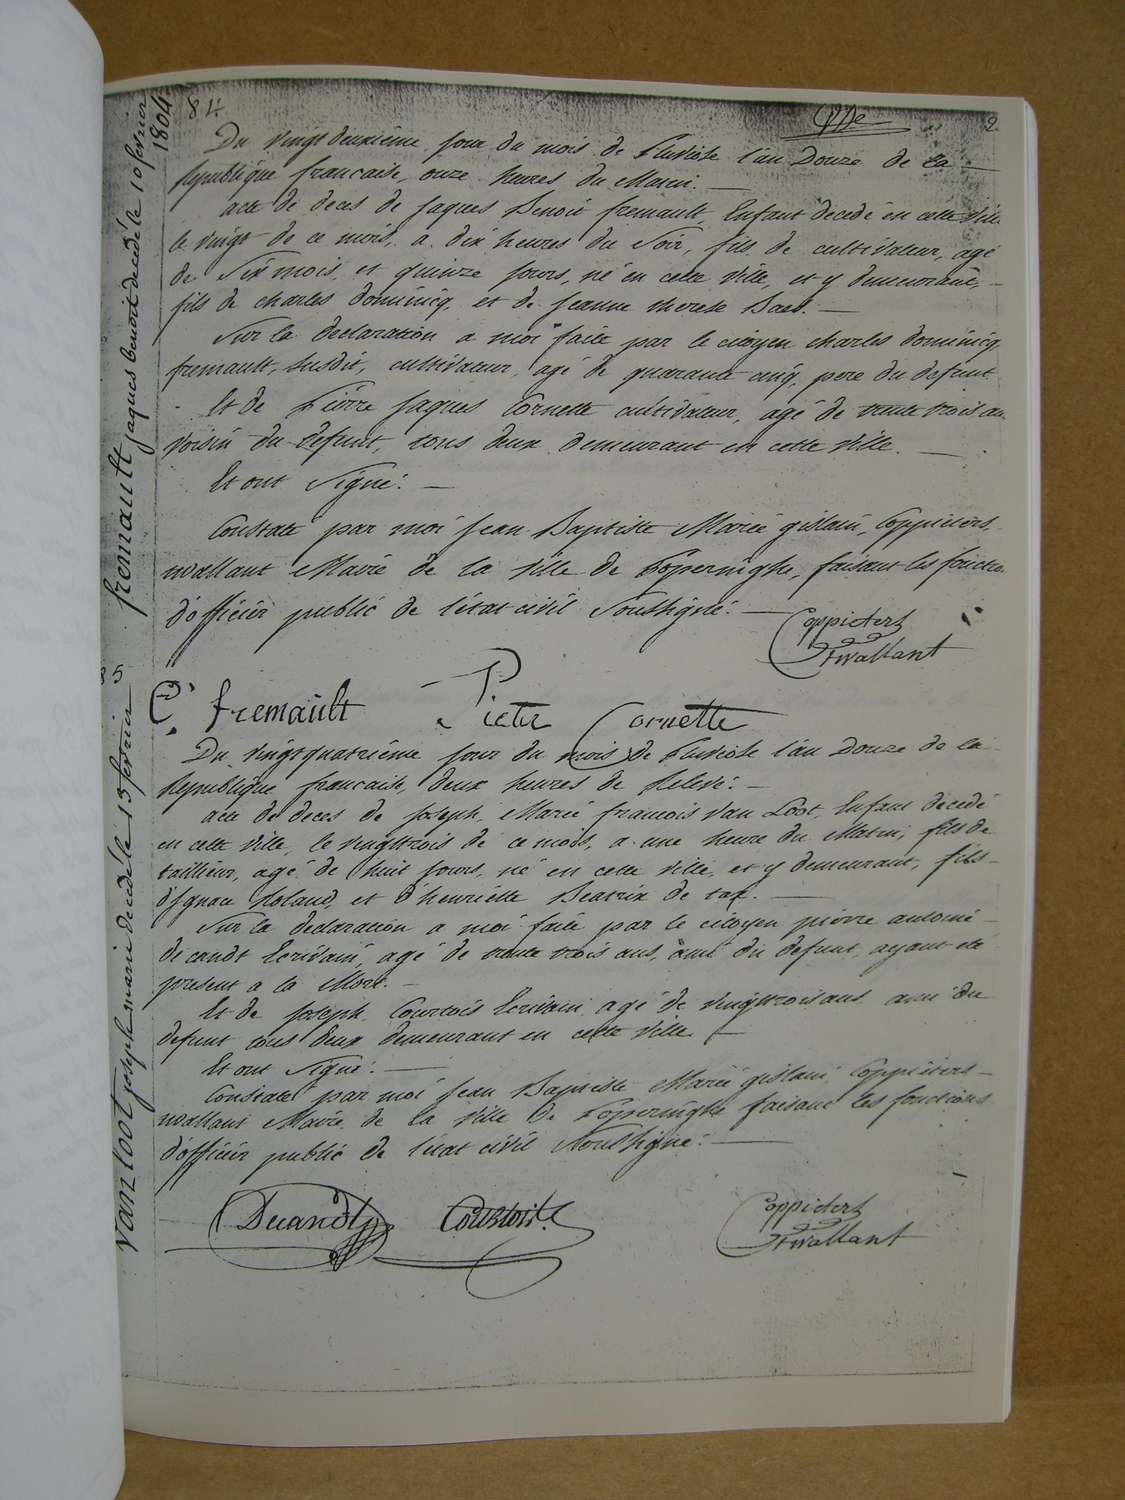 84
2
Du vingtdeuxiême jour du mois de Pluviose l'an Douze de la
Republique francaise, onze heures du Matin. —
acte de deces de Jaques Benoit fremault, Enfant décedé en cette ville
le vingt de ce mois, a dix heures du Soir, fils de cultivateur, agé
de Six mois et quinze jours, né en cette ville, et y demeurant, —
fils de charles dominicq, et de Jeanne therese Baes. —
Sur la declaration a moi faite par le citoyen charles dominicq
fremault, susdit, cultivateur, agé de quarante cinq, pere du defunt
Et de Pierre Jaques Cornette cultivateur, agé de trente trois an
voisin du defunt, tous deux demeurant en cette ville. —
Et ont Signé. —
Constaté par moi Jean Baptiste Marie gislain, Coppieters
wallant Maire de la ville de Poperinghe, faisant les fonctio
d'officier public de l'état civil Soussigné. —
Coppieters
Stwallant
fremault jaques benoit decédé le 10 fevrier 1804
85
C. fremault Pieter Cornette
Du vingtquatriême jour du mois de Pluviose l'an Douze de la
Republique francaise, deux heures de Relevé. —
acte de deces de Joseph Marie francois Van Loot, Enfant décedé
en cette ville, le vingttrois de ce mois, a une heure du Matin, fils de
taillieur, agé de huit jours, né en cette ville, et y demeurant, fils —
d'Ignace Roland, et d'henriette Beatrix de tax. —
Sur la declaration a moi faite par le citoyen pierre antoine —
de candt Ecrivain, agé de trente trois ans, ami du defunt, ayant eté
present a la Mort. —
Et de Joseph Courtois Ecrivain agé de vingttrois ans ami du
defunt tous deux demeurant en cette ville. —
Et ont Signé. —
Constaté par moi Jean Baptiste Marie gislain Coppieters —
wallant Maire de la ville de Poperinghe faisant les fonctions
d'officier public de l'état civil Soussigné. —
vanloot joseph marie decédé le 13 fevrier
Decandt Courtois
Coppieters
Stwallant